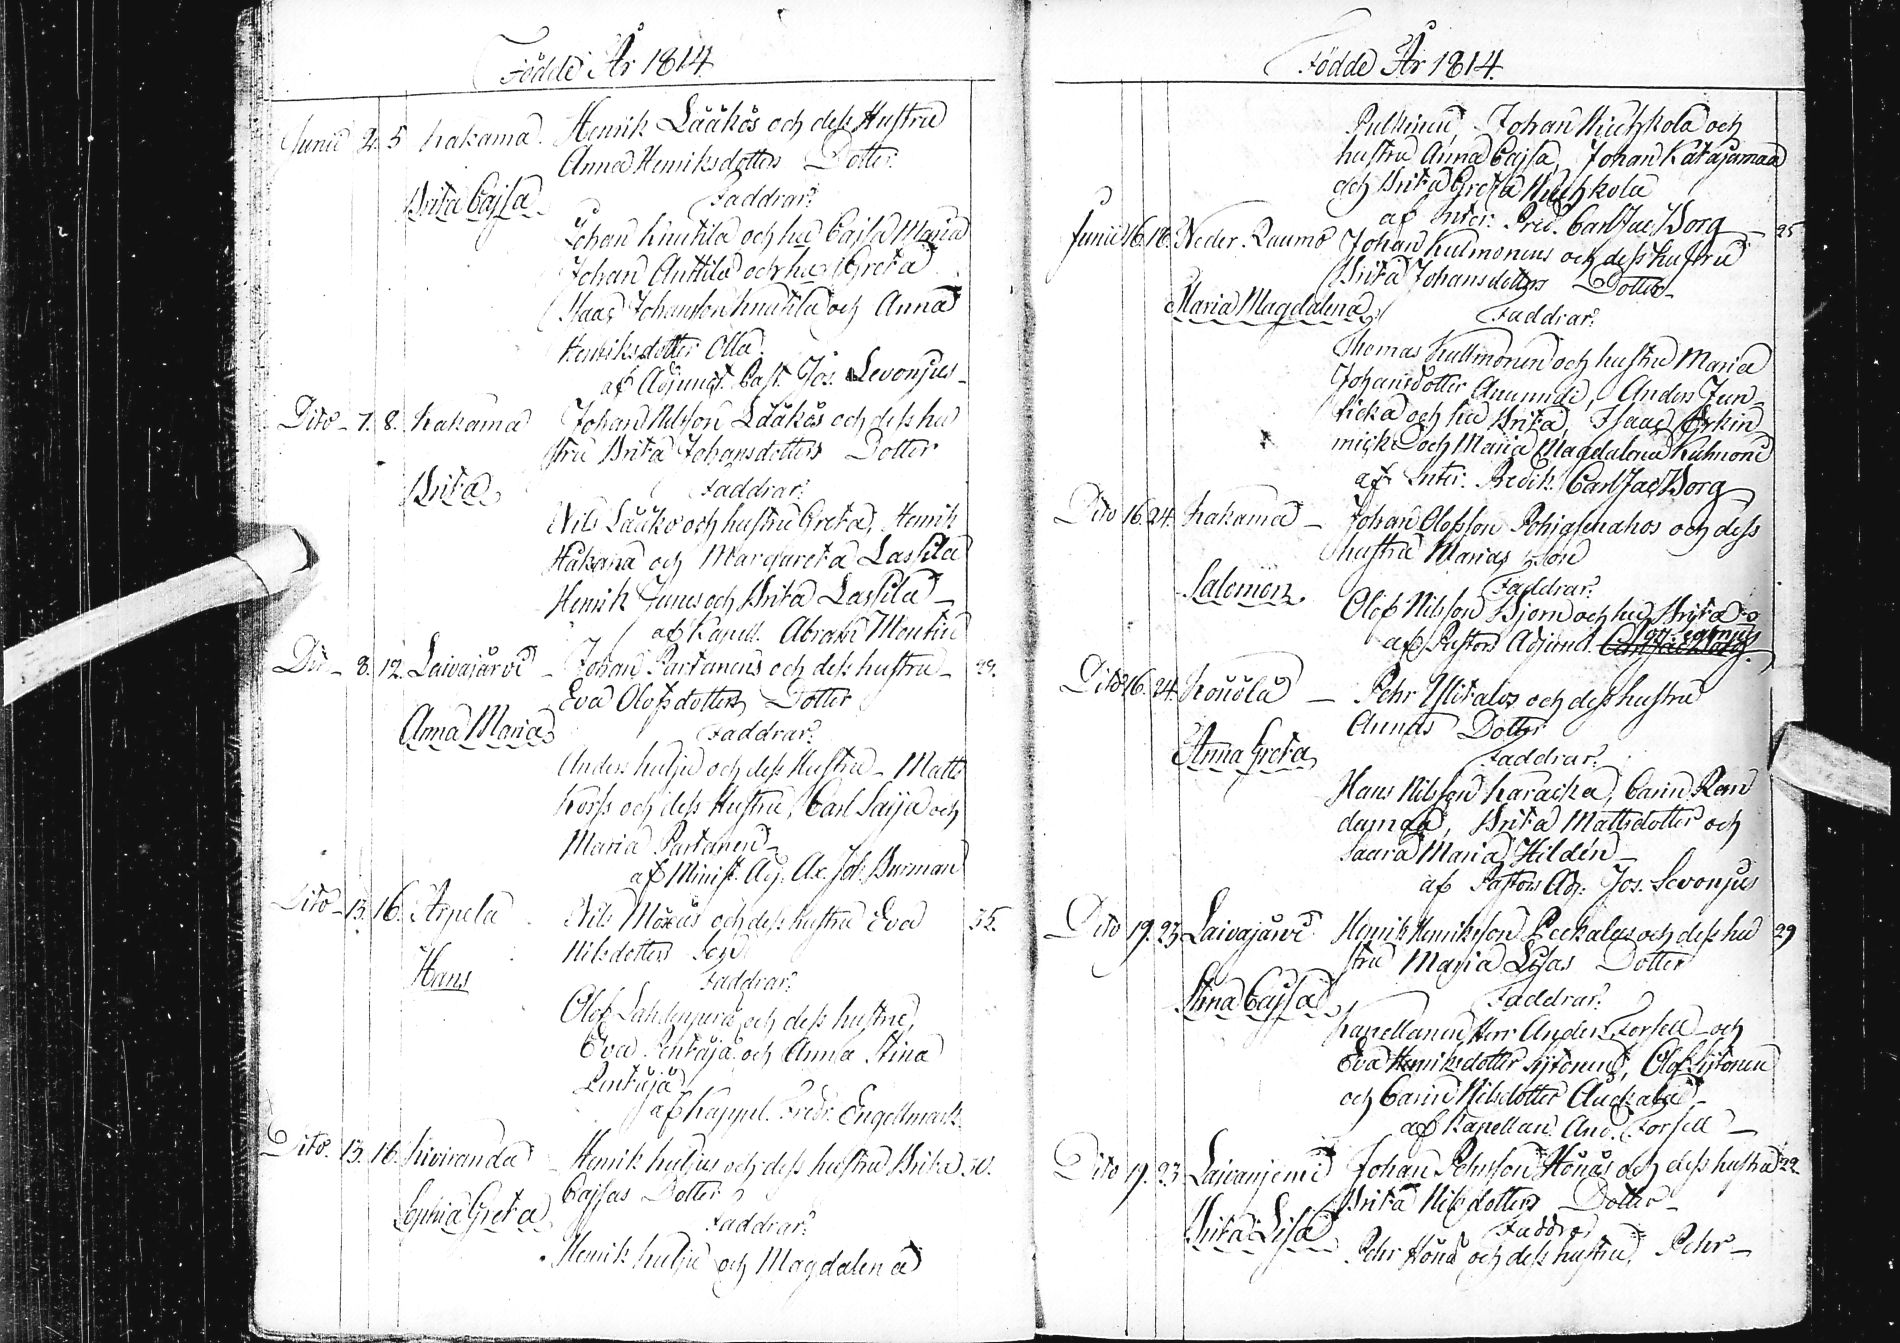 Födde År 1814
Junii 2. 5 Kakama Henrik Lääkös och dess Hustru
Anna Henriksdotters Dotter
Brita Cajsa
Faddrar:
Johan Knutila och hu Cajsa Maria
Johan Anttila och hu Greta
Isaac Johansson Knutila och Anna
Henriksdotter Olla
af Adjunct. Past. Jos. Levonjus
Dito 7. 8. Kakama Johan Nilsson Lääkös och dess hu
stru Brita Johansdotters Dotter
Brita
Faddrar:
Nils Lääkö och hustru Greta, Henrik
Hakama och Margareta Lassila
Henrik Junes och Brita Lassila
af Kapell. Abrah Montin
Dit 8. 12. Laivajärvi Johan Partanens och dess hustru
Eva Olofsdotters Dotter
Anna Maria
Faddrar:
Anders Kulju och dess Hustru Matts
Korss och dess Hustru, Carl Saija och
Maria Partanen
af Minist. Adj. Ax. Joh. Burman
Dito 13. 16. Arpela Nils och dess hustru Eva 35.
Nilsdotters Son
Hans
Faddrar:
Olof och dess hustru,
Eva Pentäjä och Anna Stina
Pentäjä
af Kappel. Fredr. Engelmark
Dito. 13. 16. Kiviranda Henrik Kuljus och dess hustru Brita
Cajsas Dotter
Sophia Greta
Faddrar:
Henrik Kulju och Magdalena
Födde År 1814
Pulkinen, Johan och
hustru Anna Cajsa, Johan Katajamaa
och Brita Greta
af Inter. Pred. Carl Jac Borg
Junii 16. 18. Neder Raumo Johan Kulmonens och dess hustru 25
Brita Johansdotters Dotter
Maria Magdalena
Faddrar:
Thomas Kulmonen och hustru Maria
Johansdotter, Anders Jun
ticka och hu Brita, Isaac Erkin
micki och Maria Magdalena Kulmone
af Inter. Predik. Carl Jac Borg
Dito 16. 24. Kakama Johan Olofsson och dess
hustru Marias Son
Salomon
Faddrar:
Olof Nilsson Björn och hu Brita
af Pastors Adjunct.
Dito 16. 24. Koukola Pehr Ylitalos och dess hustru
Annas Dotter
Anna Greta
Faddrar:
Hans Nilsson Karacka, Carin Ran
damaa, Brita Mattsdotter och
Saara Maria Hildén
af Pastors Adj. Jos. Levonjus
Dito 19. 23 Laivajärvi Henrik Henriksson Peckalas och dess hu 29
stru Maria Lisas Dotter
Stina Cajsa
Faddrar:
Kapellanen Herr Anders Forsell och
Eva Henriksdotter Sytonen, Olof Sytonen
och Carin Nilsdotter
af Kapellan And. Forsell
Dito 19. 23 Laivaniemi Johan Pehrsson och dess hustru 22
Brita Nilsdotters Dotter
Brita Lisa
Faddrar
Pehr och dess hustru, Pehr